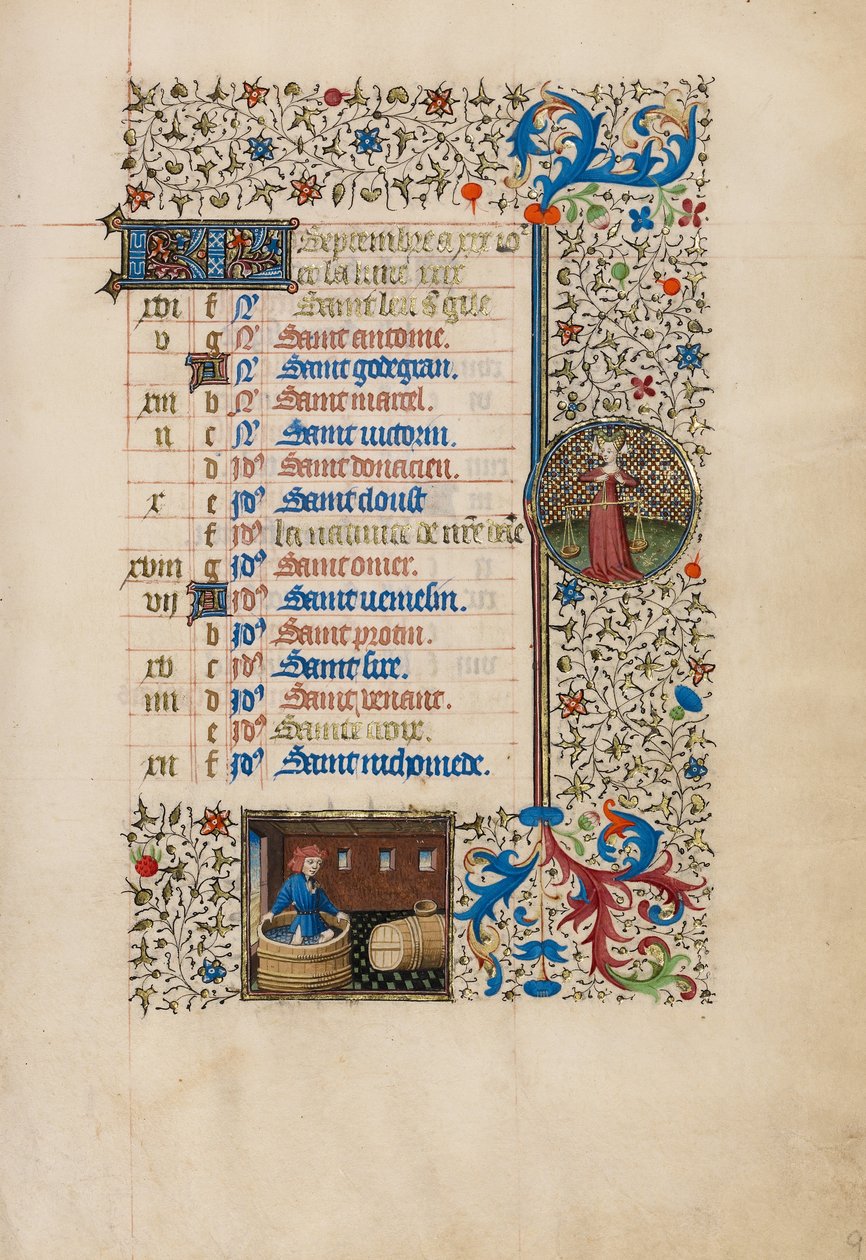 KL Septembre a xxx io's
et la lune xxix
xvi f N' Saint leu s' gile
v g N' Saint antoine.
A N' Saint godegran.
xiii b N' Saint marcel.
ii c N' Saint victorin.
d id' Saint donacien.
x e id' Saint cloust
f id' la nativite de n're da'e
xviii g id' Saint omer.
vii A id' Saint
b id' Saint protin.
xv c id' Saint sire.
iiii d id' Saint venant.
e id' Sainte croix.
xii f id' Saint nichomede.